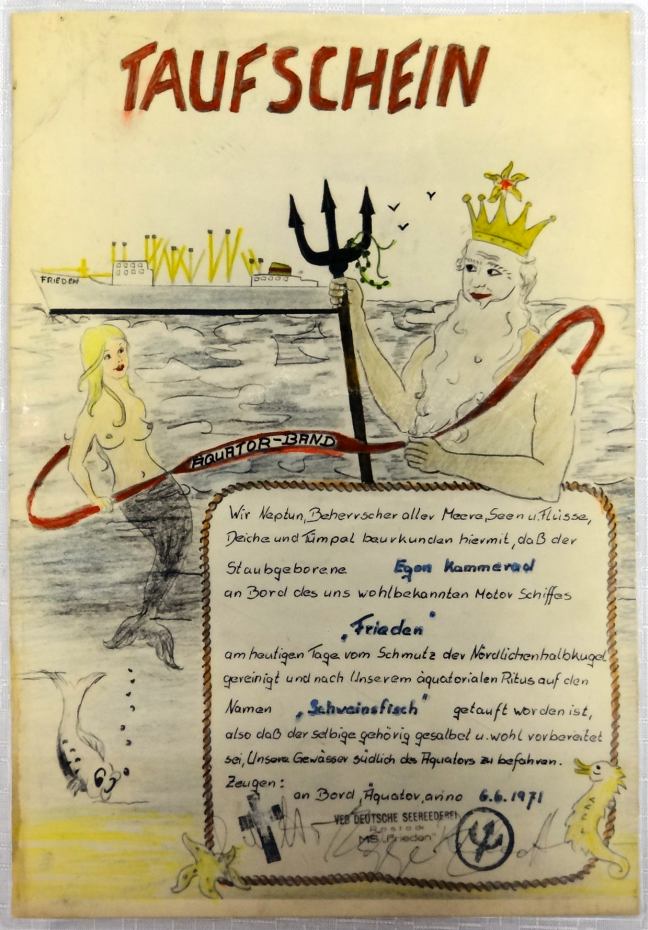 TAUFSCHEIN
FRIEDEN
ÄQUATOR-BAND
Wir Neptun, Beherrscher aller Meere, Seen u. Flüsse,
Deiche und Tümpel beurkunden hiermit, daß der
Staubgeborene Egon Kammerad
an Bord des uns wohlbekannten Motor Schiffes
„Frieden"
am heutigen Tage vom Schmutz der Nördlichenhalbkugel
gereinigt und nach Unserem äquatorialen Ritus auf den
Namen „Schweinsfisch" getauft worden ist,
also daß der selbige gehörig gesalbt u. wohl vorbereitet
sei, Unsere Gewässer südlich des Äquators zu befahren.
Zeugen:
an Bord, Äquator, anno 6.6.1971
VEB DEUTSCHE SEEREEDEREI
Rostock
MS „Frieden"